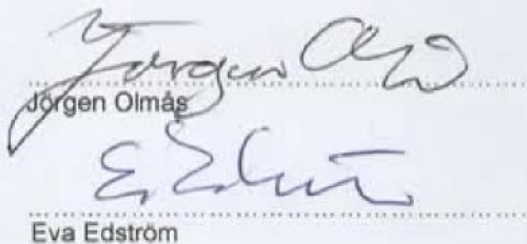 Jörgen Ol
Jörgen Olmås
E Edström
Eva Edström